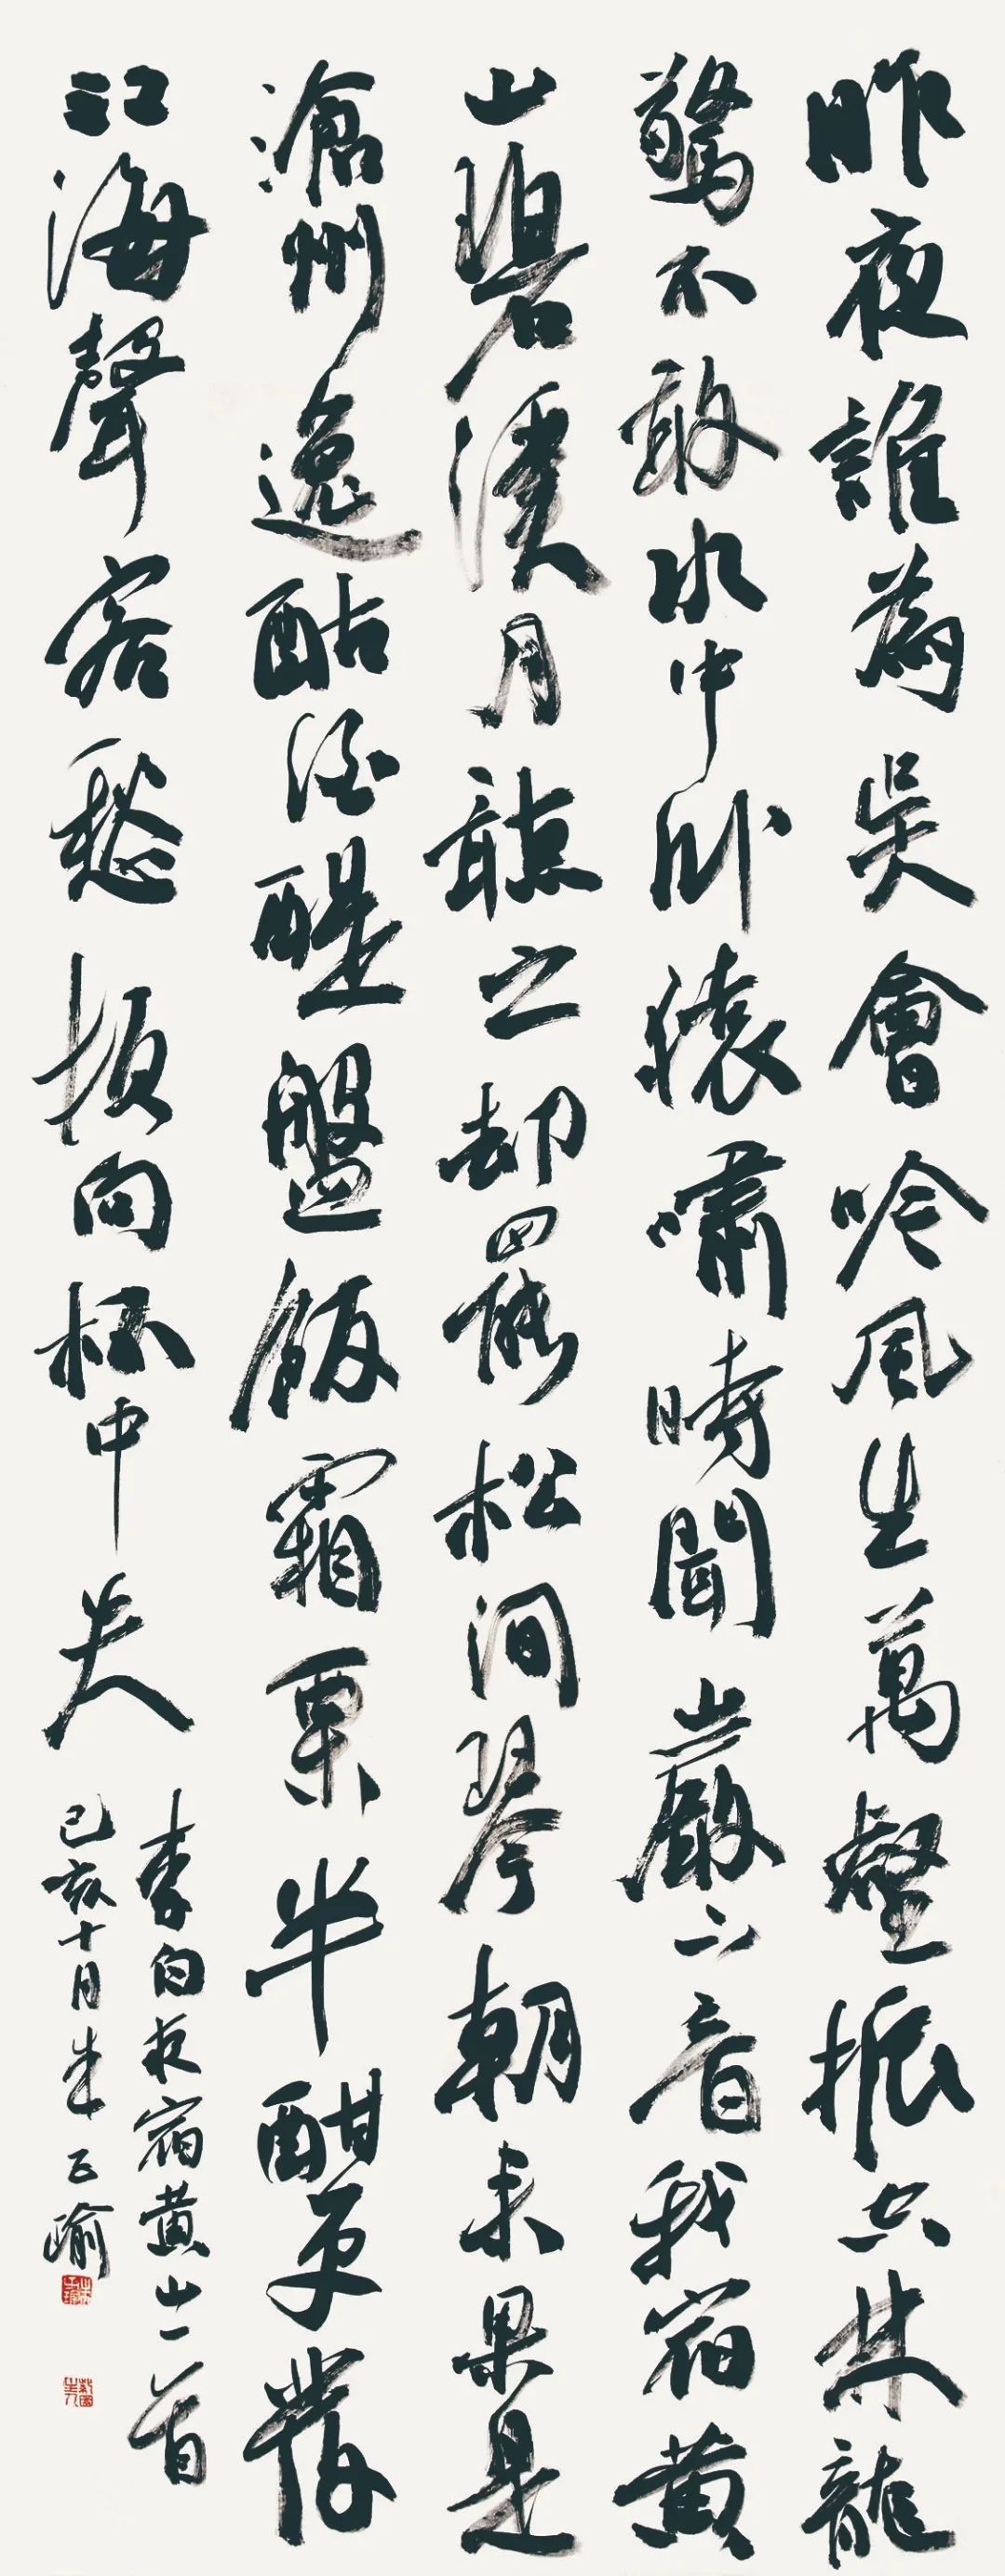 昨夜誰為吳會吟風生萬壑振空林龍
驚不敢水中卧猿嘯時聞巖下音我宿黃
山碧溪月聽之却罷松澗琴朝來果是
滄州逸酤酒醍盤飯霜栗半酣更發
江海聲客愁頓向杯中失
李白夜宿黃山一首
己亥十月朱